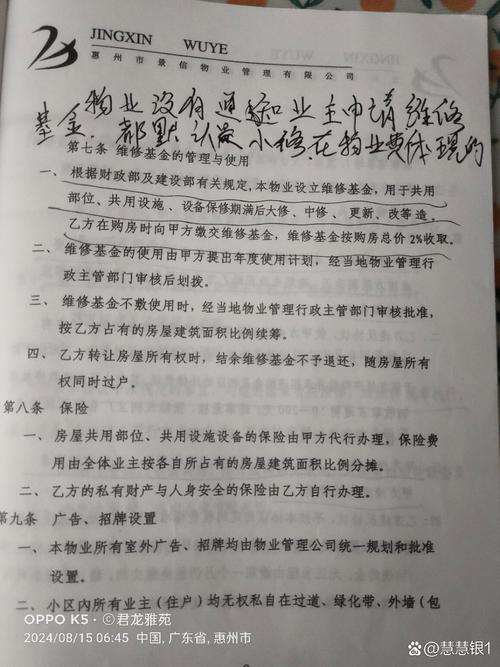 JINGXIN WUYE
惠州市景信物业管理有限公司
物业没有通知业主申请维修
基金.都默认为小修.在物业费体现的
第七条 维修基金的管理与使用
一、根据财政部及建设部有关规定,本物业设立维修基金,用于共用
部位、共用设施、设备保修期满后大修、中修、更新、改等造。
乙方在购房时向甲方缴交维修基金,维修基金按购房总价2%收取。
二、维修基金的使用由甲方提出年度使用计划,经当地物业管理行
政主管部门审核后划拨。
三、维修基金不敷使用时,经当地物业管理行政主管部门审核批准,
按乙方占有的房屋建筑面积比例续筹。
四、乙方转让房屋所有权时,结余维修基金不予退还,随房屋所有
权同时过户。
第八条 保险
一、房屋共用部位、共用设施设备的保险由甲方代行办理,保险费
用由全体业主按各自所占有的房屋建筑面积比例分摊。
二、乙方的私有财产与人身安全的保险由乙方自行办理。
第九条 广告、招牌设置
一、本物业所有室外广告、招牌均由物业管理公司统一规划和批准
设置。
二、小区内所有业主(住户)均无权私自在过道、绿化带、外墙(包
OPPO K5 · ©君龙雅苑
2024/08/15 06:45 中国,广东省,惠州市
慧慧银1